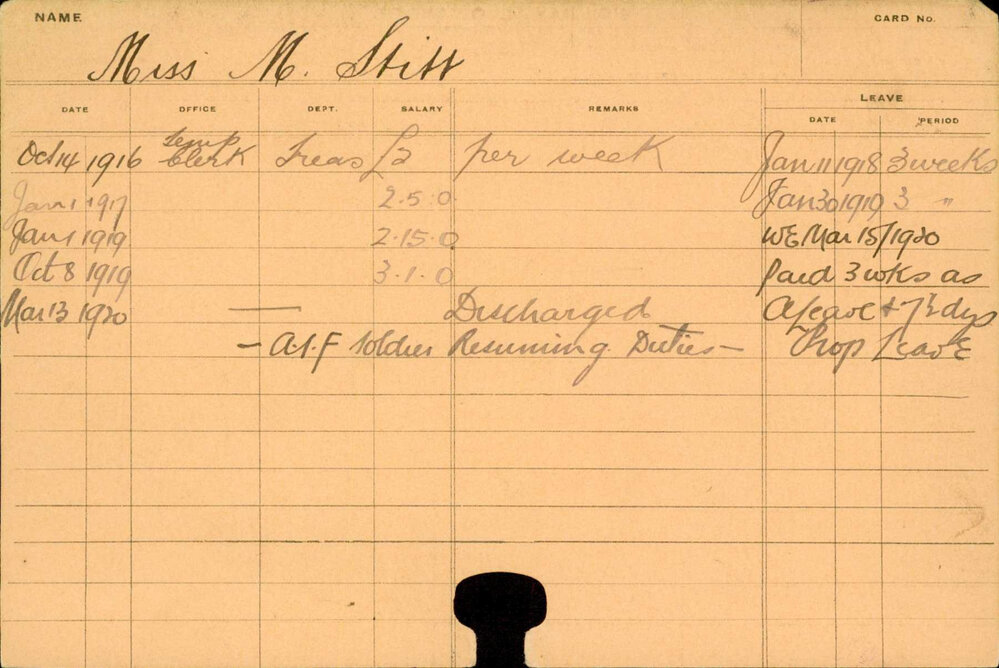 NAME
CARD No.
Miss M. Stitt
LEAVE
DATE OFFICE DEPT. SALARY REMARKS DATE PERIOD
Oct 14 1916 Temp Clerk Treas £2 per week Jan 11 1918 3 weeks
Jan 1 1917 2.5.0 Jan 30 1919 3 "
Jan 1 1919 2.15.0 WE Mar 15/1920
Oct 8 1919 3.1.0 Paid 3 wks as
Mar 13 1920 — Discharged A/Leave + 7½ dys
- A.I.F Soldier Resuming Duties - Prop Leave